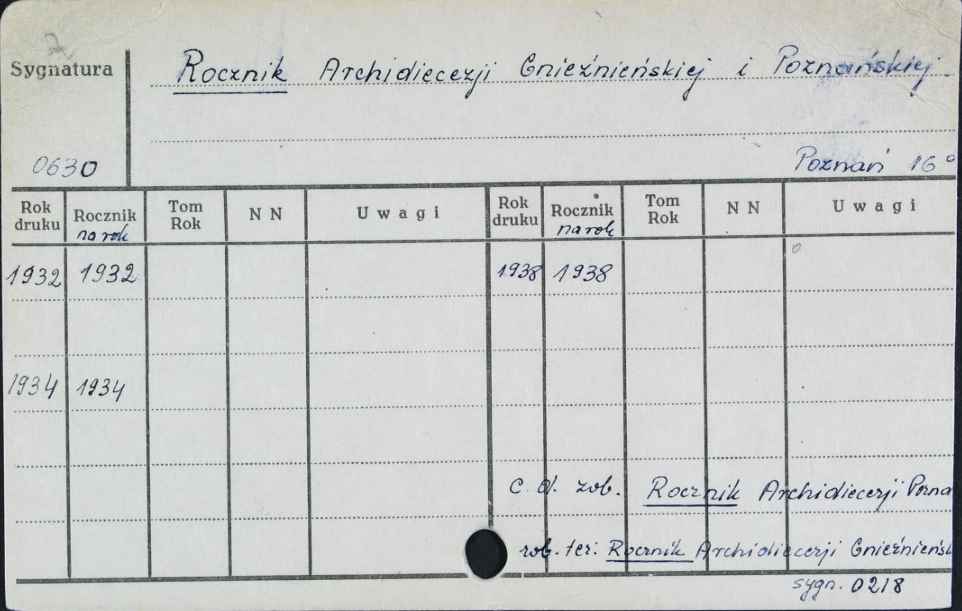 Sygnatura
Rocznik Archidiecezji Gnieźnieńskiej i Poznańskiej
0630
Poznań 16°
Rok druku Rocznik na rok Tom Rok N N U w a g i Rok druku Rocznik na rok Tom Rok N N U w a g i
1932 1932 1938 1938
1934 1934
c. d. zob. Rocznik Archidiecezji Pozna
zob. też: Rocznik Archidiecezji Gnieźnieńsk
sygn. 0218